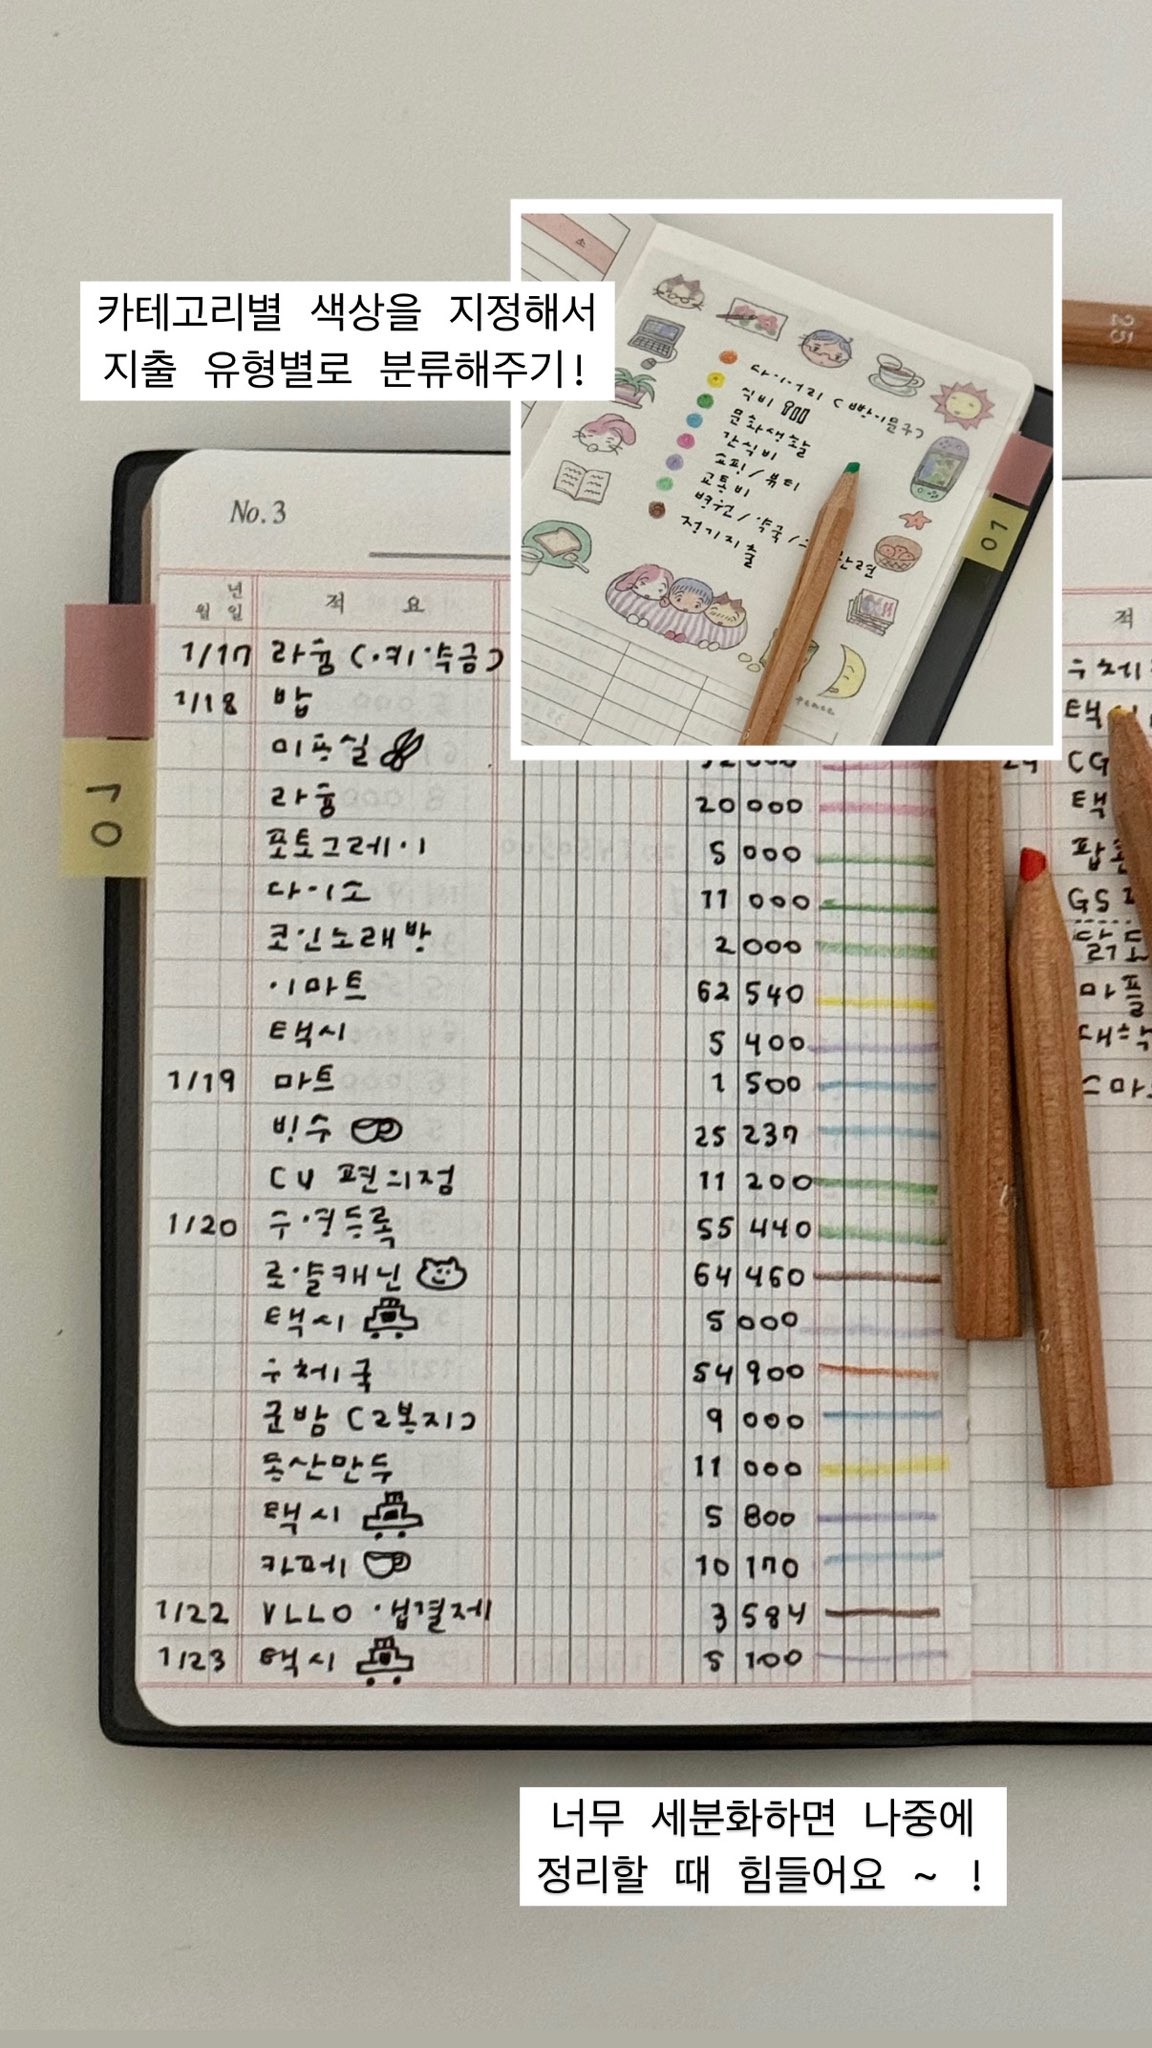 카테고리별 색상을 지정해서
지출 유형별로 분류해주기!
다이어리 (빵이문구)
식비
문화생활
간식비
쇼핑/뷰티
교통비
병원/약국/
정기지출
01
25
No.3
년
월 일
적 요
1/17 라윰 (예약금)
1/18 밥
미용실
라윰 20 000
포토그레이 5 000
다이소 11 000
코인노래방 2 000
이마트 62 540
택시 5 400
1/19 마트 1 500
빙수 25 237
CU 편의점 11 200
1/20 수영등록 55 440
로얄캐닌 64 460
택시 5 000
우체국 54 900
군밤 (2봉지) 9 000
동산만두 11 000
택시 5 800
카페 10 170
1/22 VLLO 앱결제 3 584
1/23 택시 5 100
01
적
우체
택시
CG
택
GS
마플
너무 세분화하면 나중에
정리할 때 힘들어요 ~ !